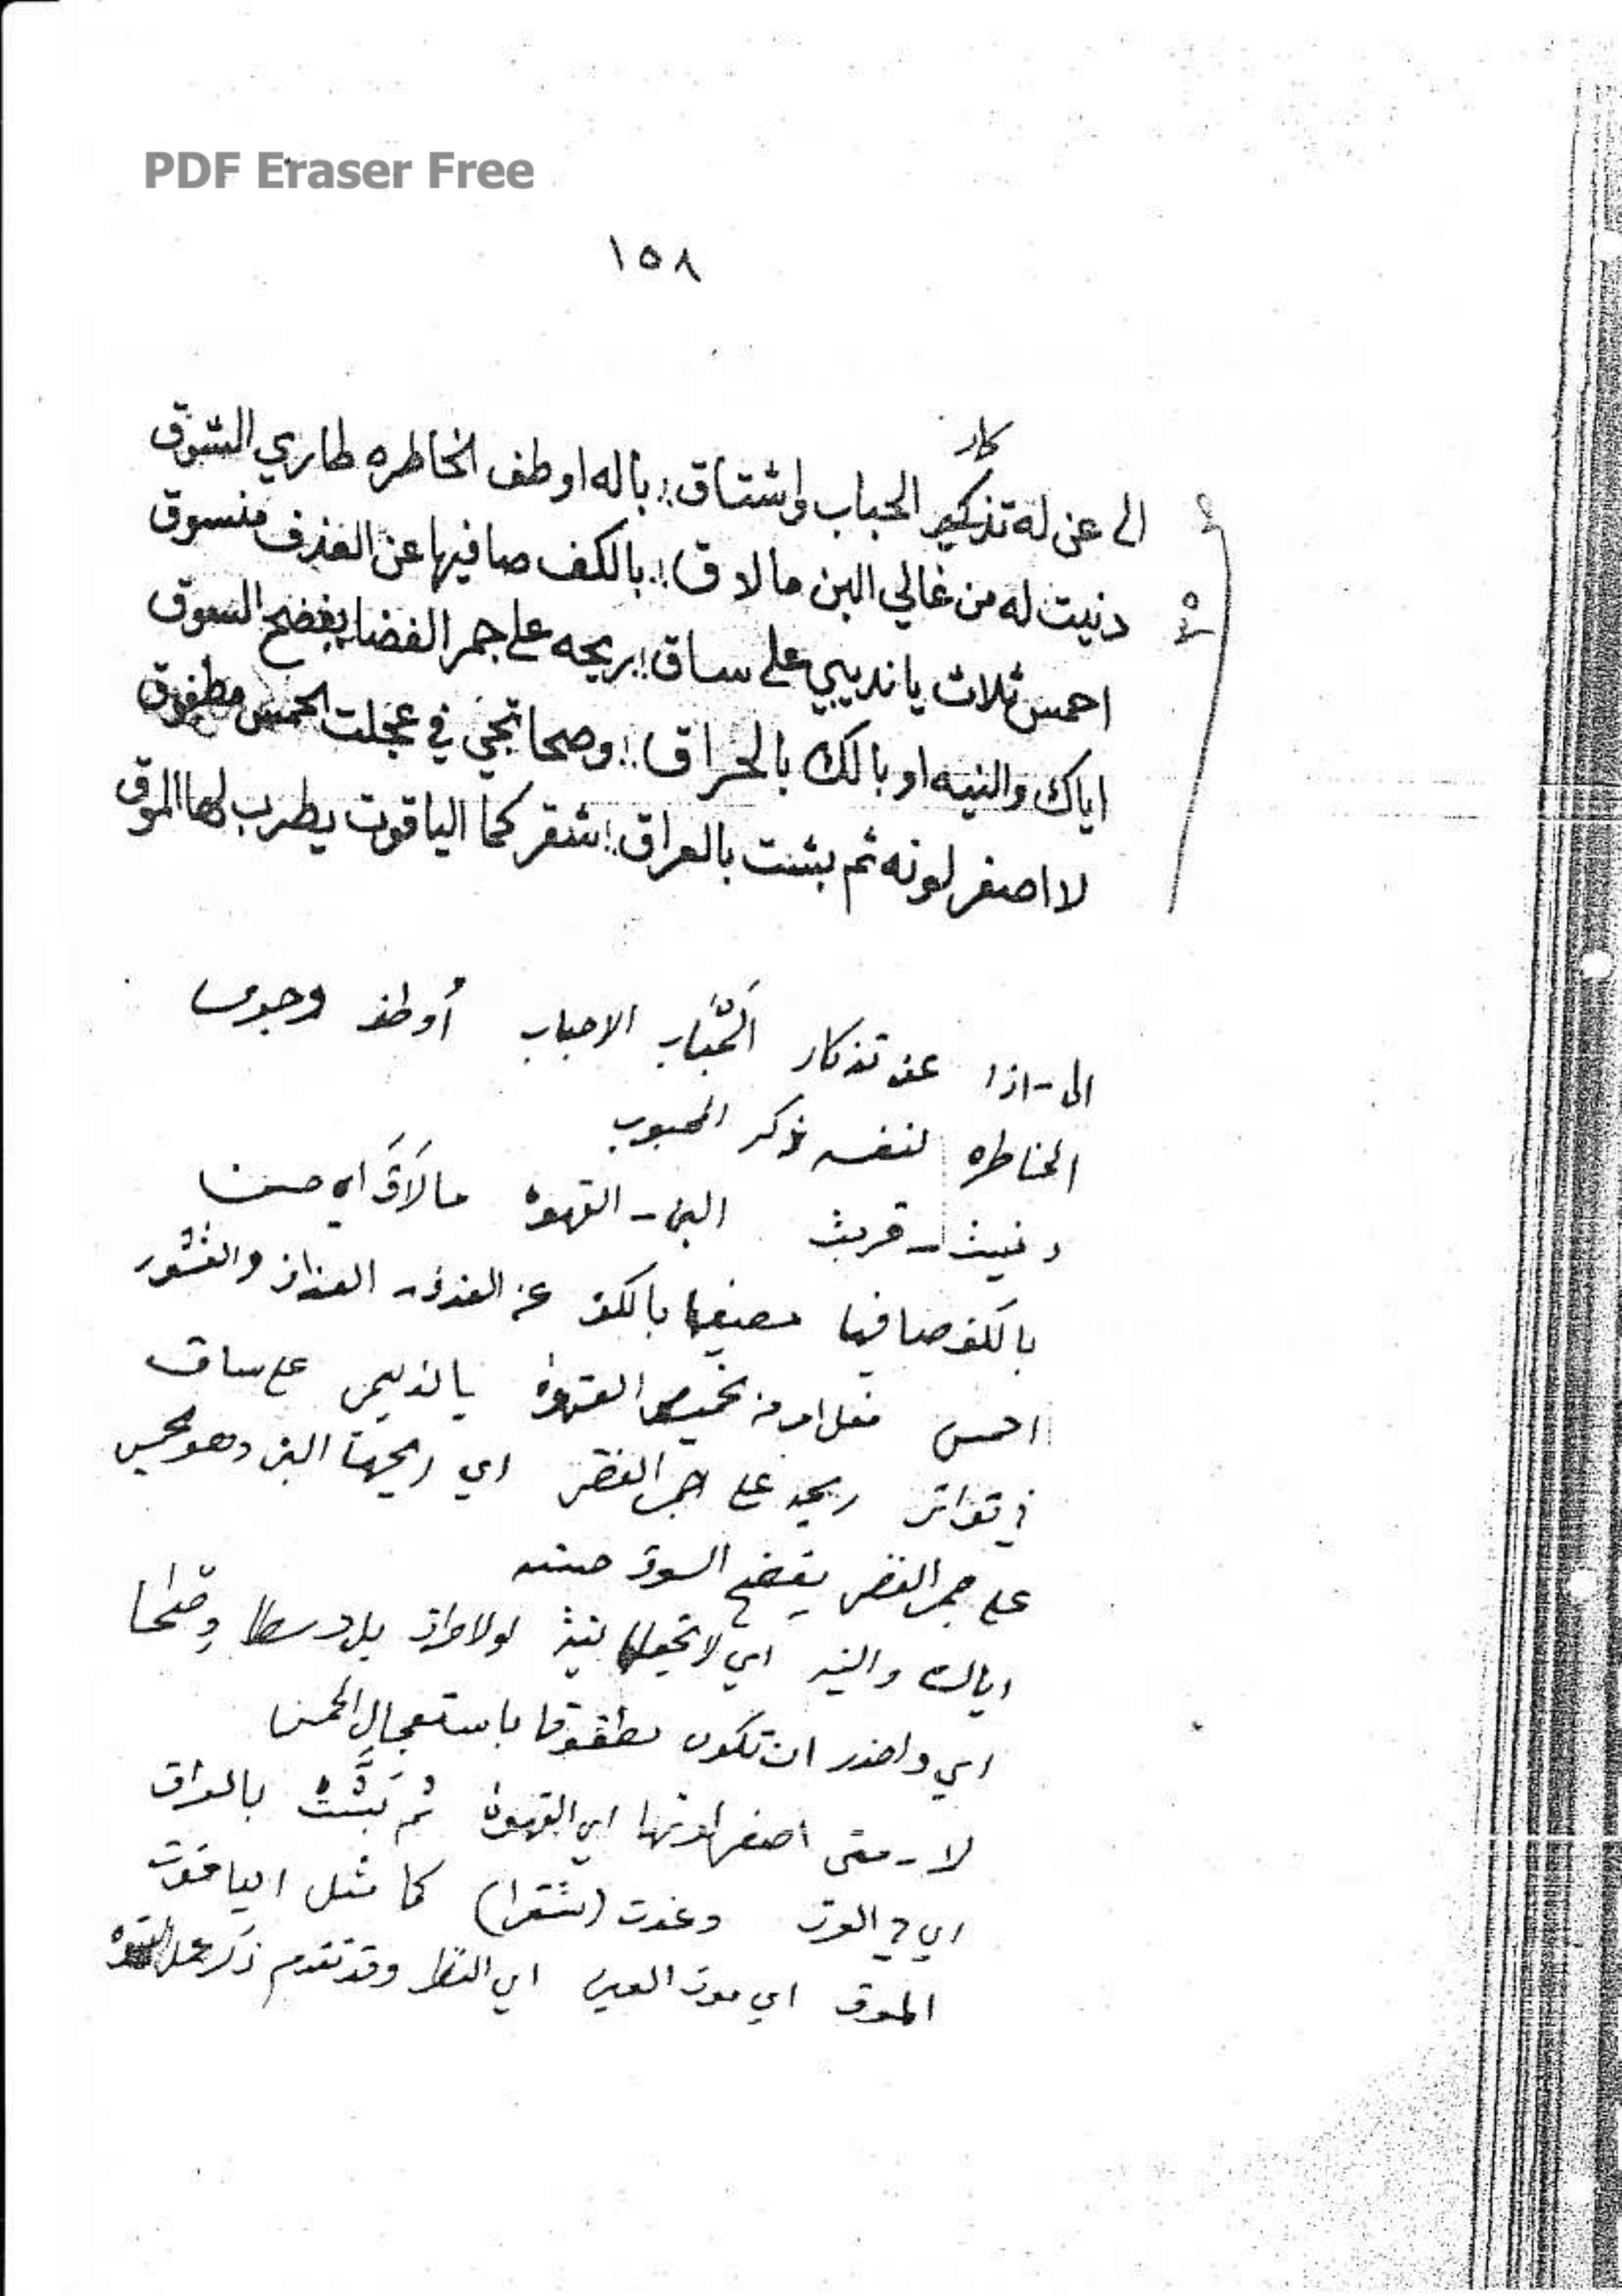 PDF Eraser Free
١٥٨
كار
الى عن له تذكير الحباب واشتاق : باله اوطف الخاطره طاري الشوق
دنيت له من غالي البن مالاق : بالكف صافيها عن العذف منسوق
احمس ثلاث يانديبي على ساق : ريحه على جمر الغضا يفضح السوق
اياك والنيه او بالك بالحراق : وصحا تجي في عجلت الحمس مطفوق
لا اصفر لونه ثم بشت بالعراق : اشقر كما الياقوت يطرب لها الموق
الى - اذا عن تذكار الحباب الاحباب أوطف
الخاطره لنفسه ذكر المحبوب
دنيت - قربت البن - القهوة مالاق اي حسنا
بالكف صافيها مصفيها بالكف عن العذف - العذاف والقشور
احمس فعل امر من تحميص القهوة يانديبي على ساق
في تواتر ريحه على جمر الغضى اي ريحة البن وهو يحمس
على جمر الغضى يفضح السوق
اياك والنيه اي لا تجعلها نيئة اولا حراق بل وسطا وصحا
اي واحذر ان تكون مطفوقا باستعجال الحمس
لا - متى اصفر لونها اي القهوة ثم بشت بالعراق
اي العرق وغدت (شقرا) كما مثل الياقوت
الموق اي موق العين اي النظر وقد تقدم ذكر عمل القهوة